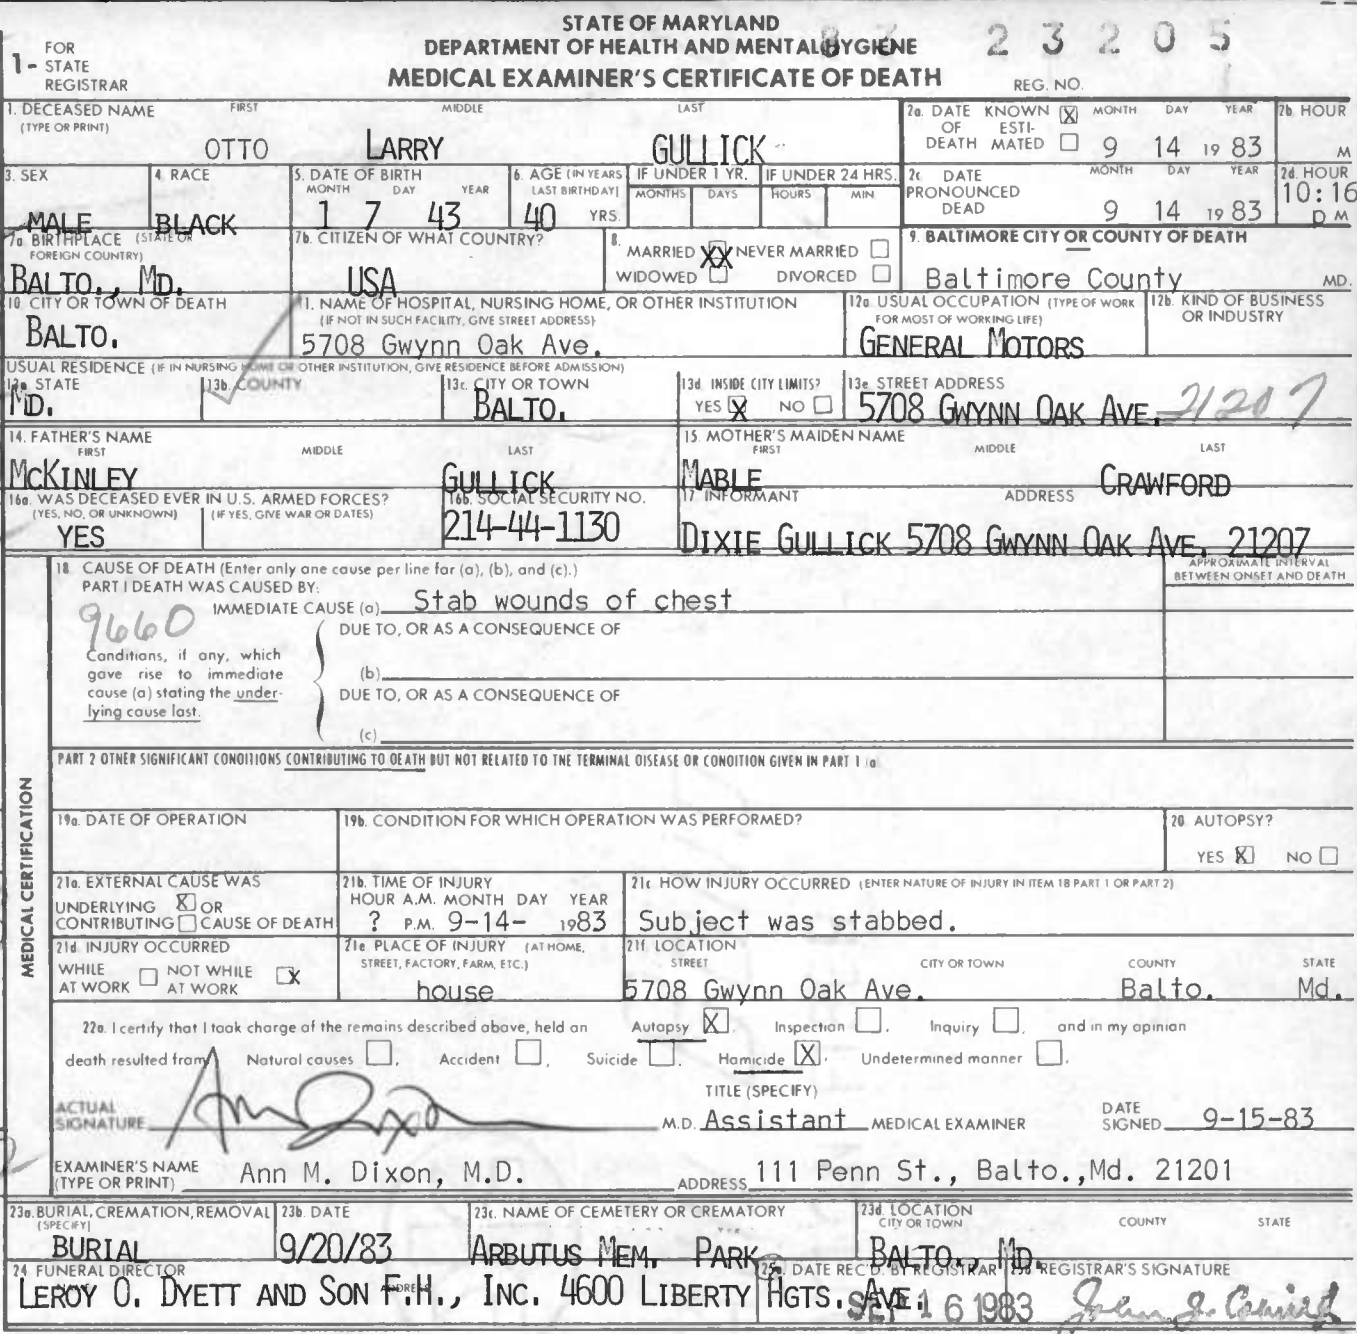 STATE OF MARYLAND
DEPARTMENT OF HEALTH AND MENTAL HYGIENE
MEDICAL EXAMINER'S CERTIFICATE OF DEATH
1 - FOR STATE REGISTRAR
83 23205
REG. NO.
1. DECEASED NAME (TYPE OR PRINT) FIRST MIDDLE LAST
OTTO LARRY GULLICK
2a. DATE OF DEATH KNOWN X ESTIMATED MONTH DAY YEAR
9 14 19 83
2b. HOUR M
3. SEX
MALE
4. RACE
BLACK
5. DATE OF BIRTH MONTH DAY YEAR
1 7 43
6. AGE (IN YEARS LAST BIRTHDAY)
40 YRS.
IF UNDER 1 YR. MONTHS DAYS
IF UNDER 24 HRS. HOURS MIN
2c DATE PRONOUNCED DEAD MONTH DAY YEAR
9 14 19 83
2d. HOUR
10:16 P M
7a. BIRTHPLACE (STATE OR FOREIGN COUNTRY)
BALTO., MD.
7b. CITIZEN OF WHAT COUNTRY?
USA
8. MARRIED XX NEVER MARRIED
WIDOWED DIVORCED
9. BALTIMORE CITY OR COUNTY OF DEATH
Baltimore County MD.
10. CITY OR TOWN OF DEATH
BALTO.
11. NAME OF HOSPITAL, NURSING HOME, OR OTHER INSTITUTION
(IF NOT IN SUCH FACILITY, GIVE STREET ADDRESS)
5708 Gwynn Oak Ave.
12a. USUAL OCCUPATION (TYPE OF WORK FOR MOST OF WORKING LIFE)
GENERAL MOTORS
12b. KIND OF BUSINESS OR INDUSTRY
USUAL RESIDENCE (IF IN NURSING HOME OR OTHER INSTITUTION, GIVE RESIDENCE BEFORE ADMISSION)
13a. STATE
MD.
13b. COUNTY
13c. CITY OR TOWN
BALTO.
13d. INSIDE CITY LIMITS?
YES X NO
13e. STREET ADDRESS
5708 GWYNN OAK AVE. 21207
14. FATHER'S NAME FIRST MIDDLE LAST
MCKINLEY GULLICK
15. MOTHER'S MAIDEN NAME FIRST MIDDLE LAST
MABLE CRAWFORD
16a. WAS DECEASED EVER IN U.S. ARMED FORCES?
(YES, NO, OR UNKNOWN) (IF YES, GIVE WAR OR DATES)
YES
16b. SOCIAL SECURITY NO.
214-44-1130
17 INFORMANT ADDRESS
DIXIE GULLICK 5708 GWYNN OAK AVE. 21207
MEDICAL CERTIFICATION
18. CAUSE OF DEATH (Enter only one cause per line for (a), (b), and (c).)
APPROXIMATE INTERVAL BETWEEN ONSET AND DEATH
PART I DEATH WAS CAUSED BY:
IMMEDIATE CAUSE (a) Stab wounds of chest
9660
DUE TO, OR AS A CONSEQUENCE OF
Conditions, if any, which
gave rise to immediate
cause (a) stating the under-
lying cause last.
(b)
DUE TO, OR AS A CONSEQUENCE OF
(c)
PART 2 OTHER SIGNIFICANT CONDITIONS CONTRIBUTING TO DEATH BUT NOT RELATED TO THE TERMINAL DISEASE OR CONDITION GIVEN IN PART 1 (a
19a. DATE OF OPERATION
19b. CONDITION FOR WHICH OPERATION WAS PERFORMED?
20. AUTOPSY?
YES X NO
21a. EXTERNAL CAUSE WAS
UNDERLYING X OR
CONTRIBUTING CAUSE OF DEATH
21b. TIME OF INJURY
HOUR A.M. MONTH DAY YEAR
? P.M. 9-14- 1983
21c HOW INJURY OCCURRED (ENTER NATURE OF INJURY IN ITEM 18 PART 1 OR PART 2)
Subject was stabbed.
21d INJURY OCCURRED
WHILE AT WORK NOT WHILE AT WORK X
21e PLACE OF INJURY (AT HOME, STREET, FACTORY, FARM, ETC.)
house
21f. LOCATION
STREET CITY OR TOWN COUNTY STATE
5708 Gwynn Oak Ave. Balto. Md.
22a. I certify that I took charge of the remains described above, held an Autopsy X, Inspection, Inquiry, and in my opinion
death resulted from Natural causes, Accident, Suicide, Homicide X, Undetermined manner.
ACTUAL SIGNATURE Ann Dixon M.D.
TITLE (SPECIFY)
Assistant MEDICAL EXAMINER
DATE SIGNED 9-15-83
EXAMINER'S NAME (TYPE OR PRINT) Ann M. Dixon, M.D.
ADDRESS 111 Penn St., Balto.,Md. 21201
23a. BURIAL, CREMATION, REMOVAL (SPECIFY)
BURIAL
23b. DATE
9/20/83
23c. NAME OF CEMETERY OR CREMATORY
ARBUTUS MEM. PARK
23d. LOCATION CITY OR TOWN COUNTY STATE
BALTO., MD.
24 FUNERAL DIRECTOR ADDRESS
LEROY O. DYETT AND SON F.H., INC. 4600 LIBERTY HGTS. AVE.
25a. DATE REC'D. BY REGISTRAR
SEP 16 1983
25b REGISTRAR'S SIGNATURE